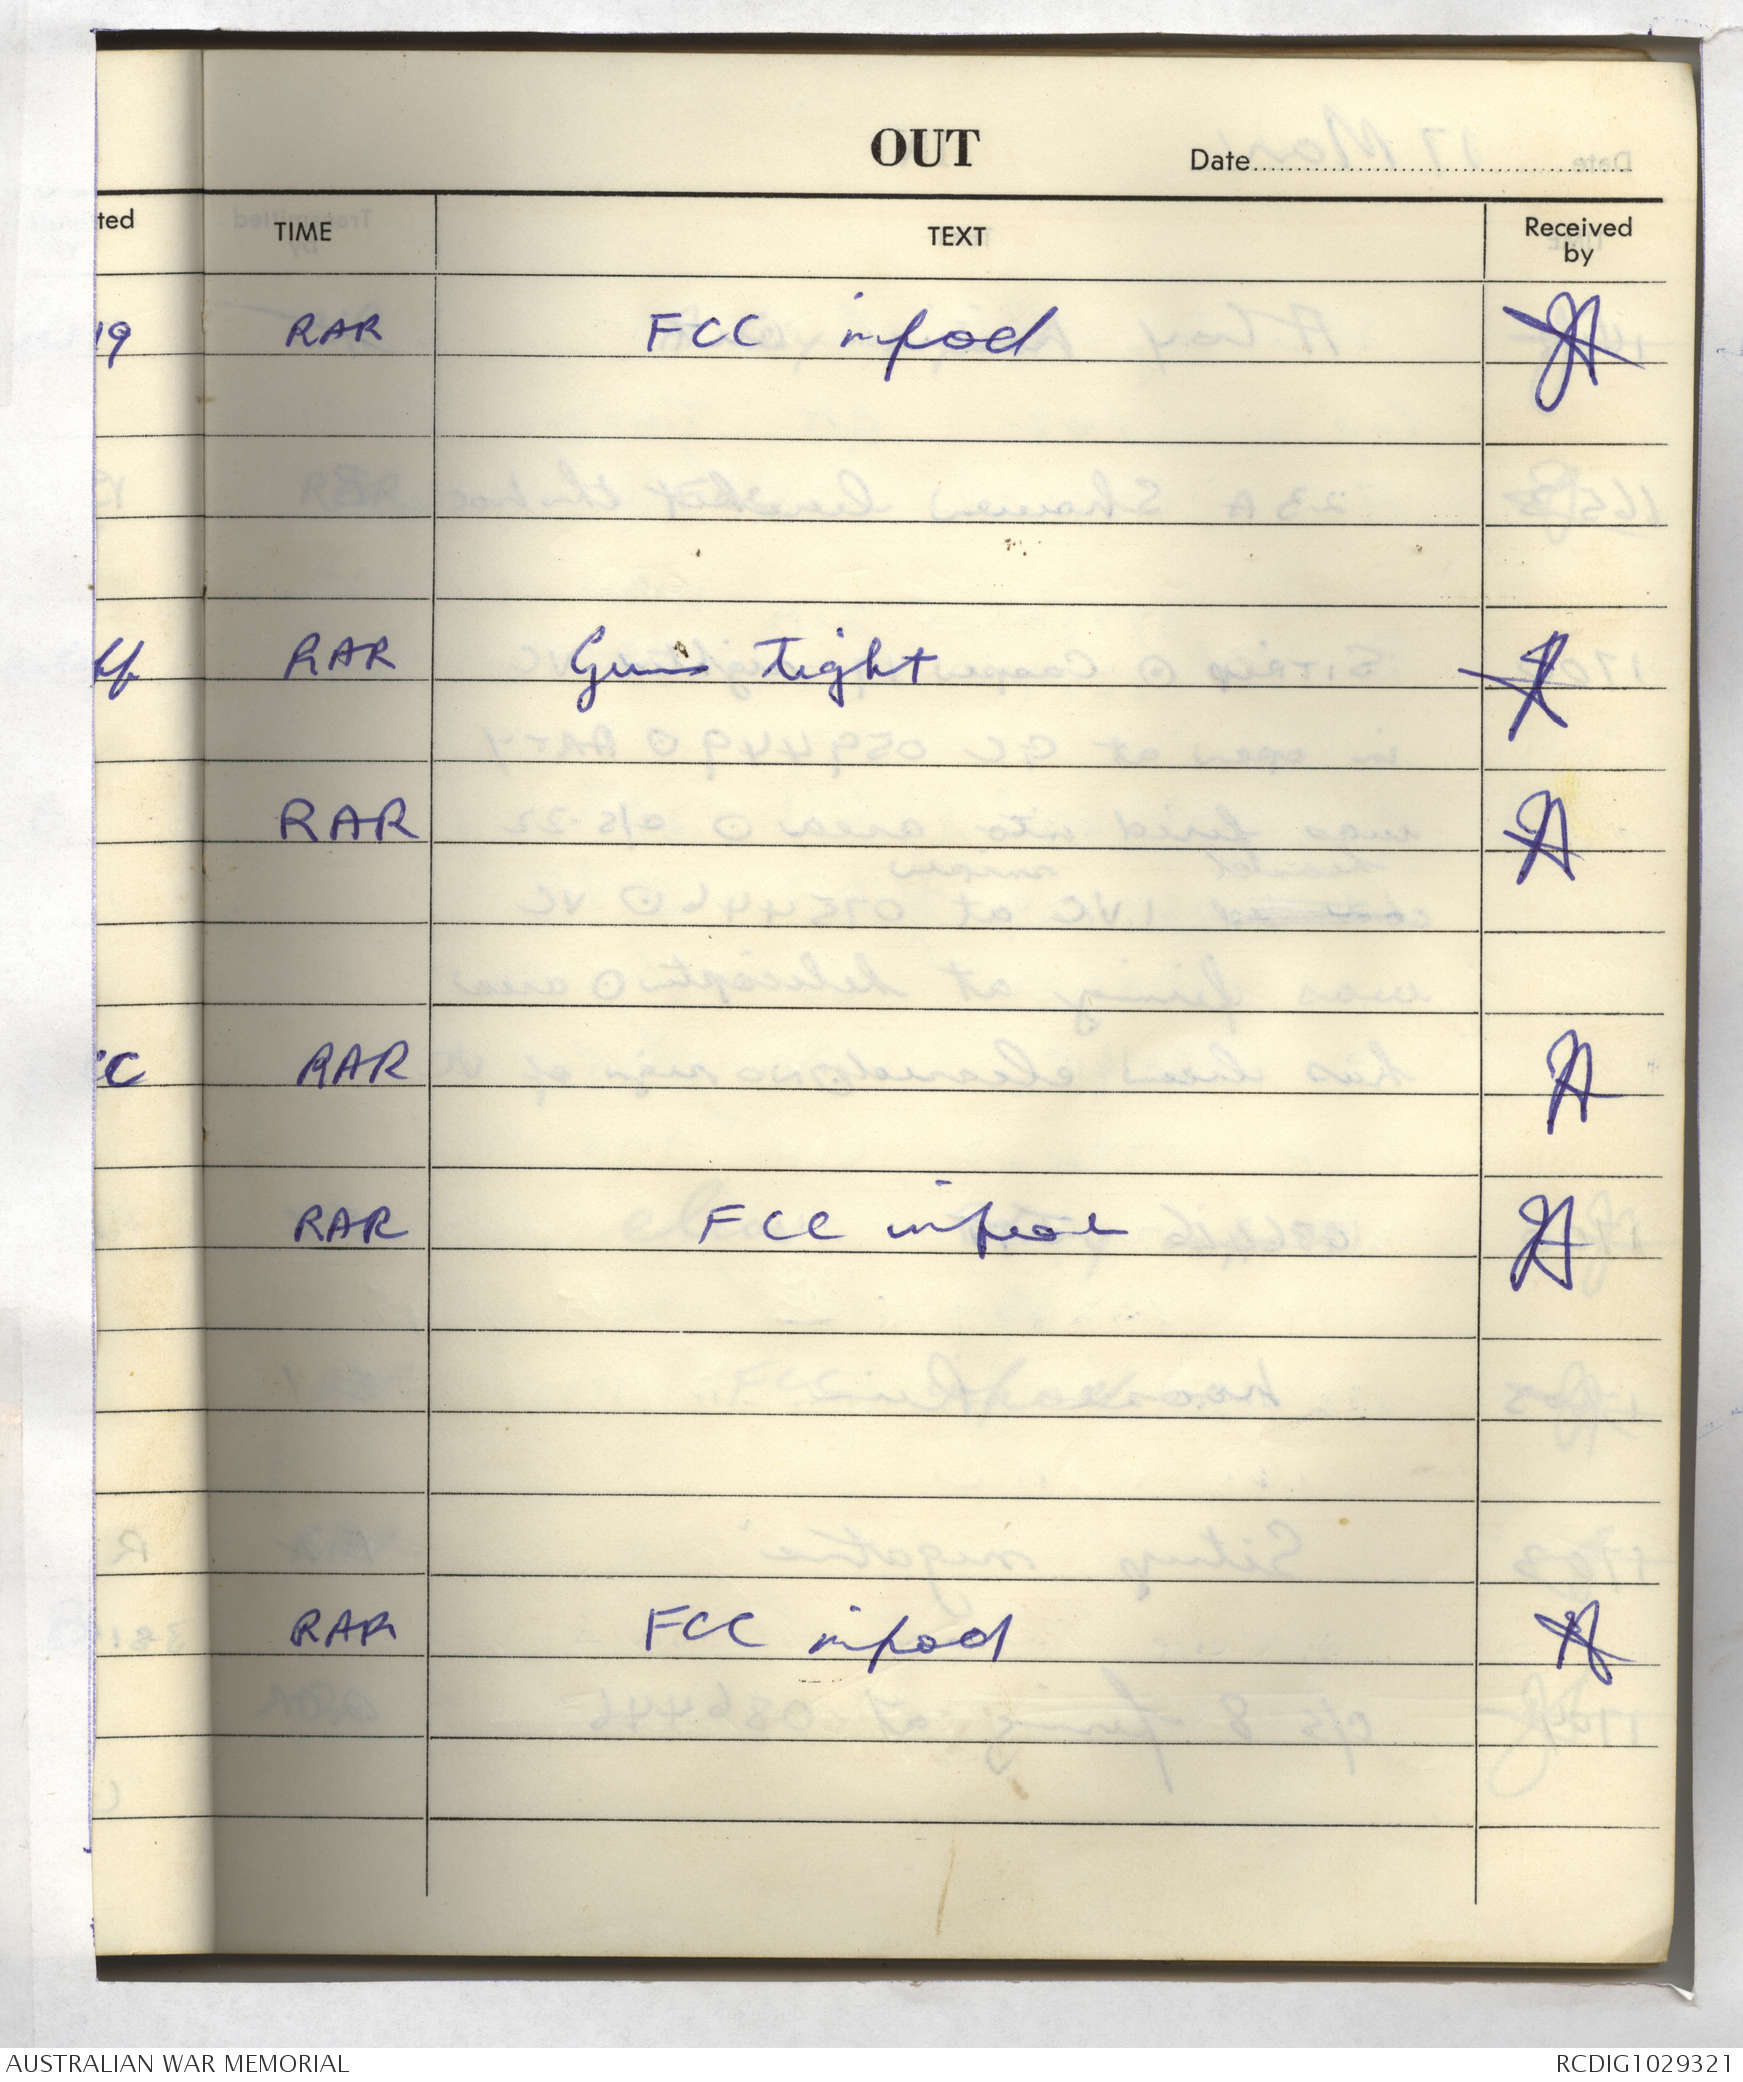 OUT
Date
ted TIME TEXT Received by
19 RAR FCC infod
RAR Guns tight
RAR
C RAR
RAR FCC infod
RAR FCC infod
AUSTRALIAN WAR MEMORIAL RCDIG1029321